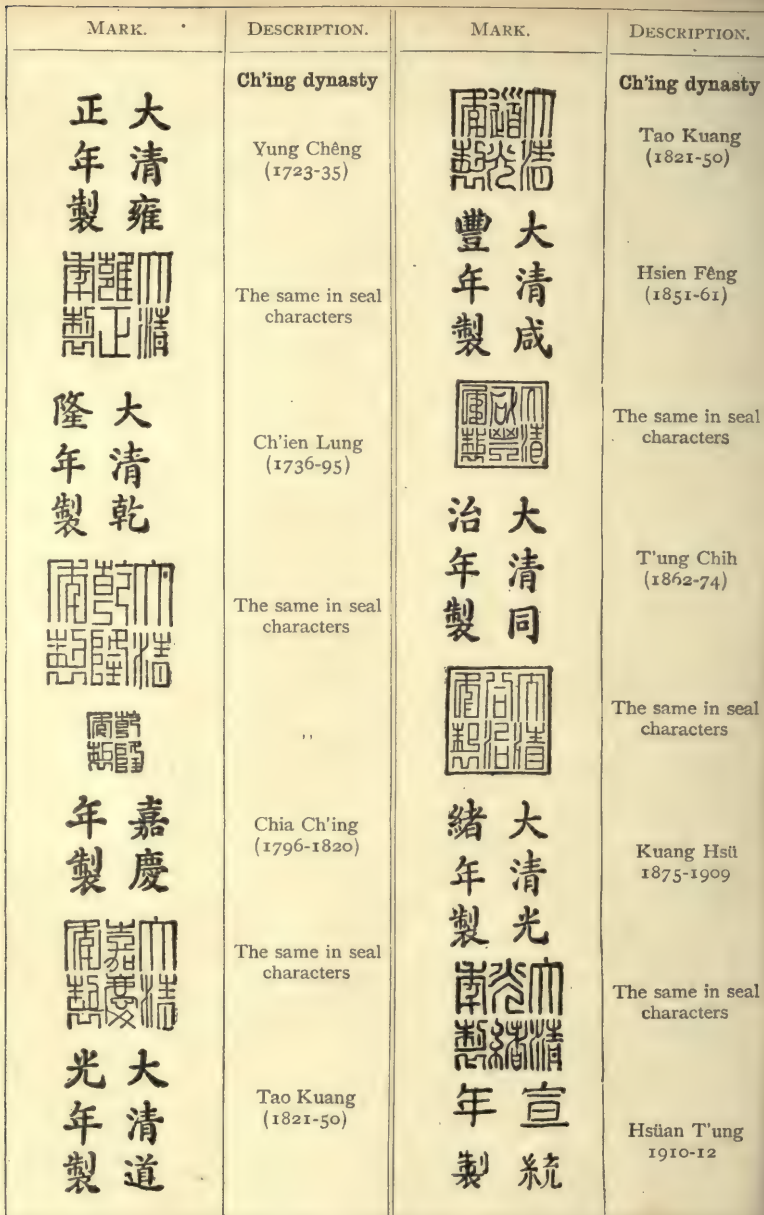 MARK.
DESCRIPTION.
Ch'ing dynasty
大清雍
正年製
Yung Chêng
(1723-35)
大清
雍正
年製
The same in seal
characters
大清乾
隆年製
Ch'ien Lung
(1736-95)
大清
乾隆
年製
The same in seal
characters
乾隆
年製
,,
嘉慶
年製
Chia Ch'ing
(1796-1820)
大清
嘉慶
年製
The same in seal
characters
大清道
光年製
Tao Kuang
(1821-50)
MARK.
DESCRIPTION.
Ch'ing dynasty
大清
道光
年製
Tao Kuang
(1821-50)
大清咸
豐年製
Hsien Fêng
(1851-61)
大清
咸豐
年製
The same in seal
characters
大清同
治年製
T'ung Chih
(1862-74)
大清
同治
年製
The same in seal
characters
大清光
緒年製
Kuang Hsü
1875-1909
大清
光緒
年製
The same in seal
characters
宣統
年製
Hsüan T'ung
1910-12